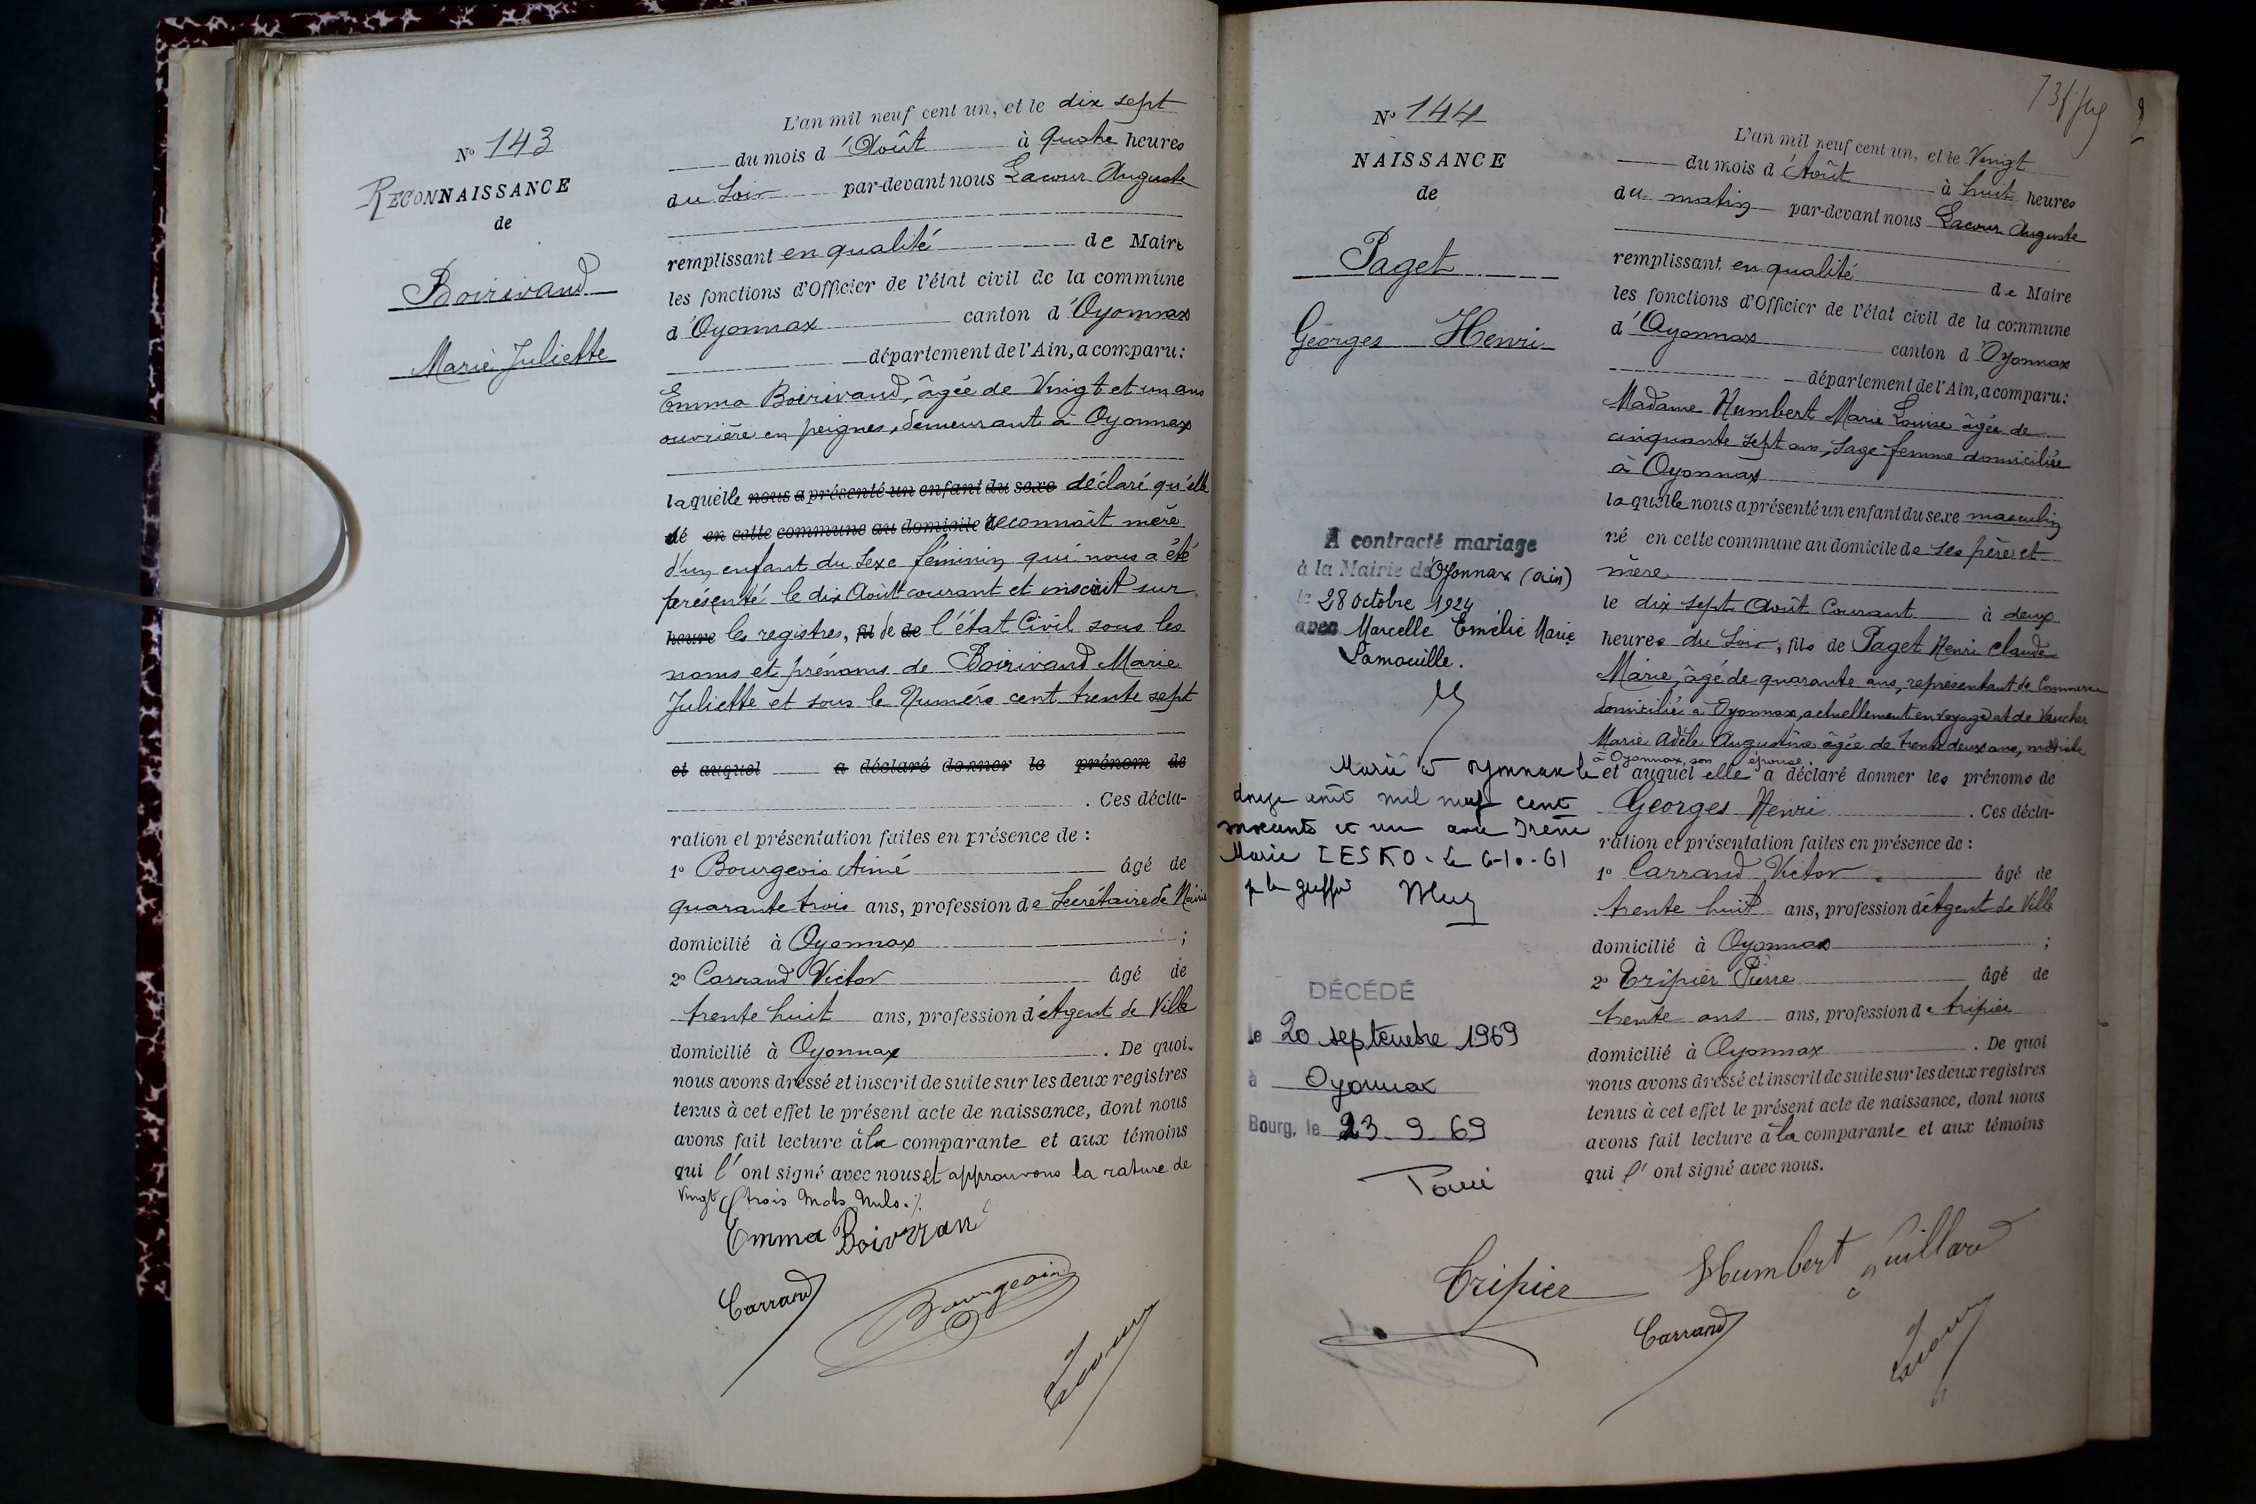 N° 143
RECONNAISSANCE
de
Boirivand
Marie Juliette
L'an mil neuf cent un, et le dix sept
du mois d'Août à quatre heures
du soir par-devant nous Lacour Auguste
remplissant en qualité de Maire
les fonctions d'Officier de l'état civil de la commune
d'Oyonnax canton d'Oyonnax
département de l'Ain, a comparu:
Emma Boirivand, âgée de Vingt et un ans
ouvrière en peignes, demeurant à Oyonnax
laquelle nous a présenté un enfant du sexe déclaré qu'elle
né en cette commune au domicile reconnait mère
d'un enfant du sexe féminin qui nous a été
présenté le dix Août courant et inscrit sur
heure les registres, fil de de l'état Civil sous les
noms et prénoms de Boirivand Marie
Juliette et sous le Numéro cent trente sept
et auquel a déclaré donner le prénom de
. Ces décla-
ration et présentation faites en présence de :
1° Bourgeois Aimé âgé de
quarante trois ans, profession de Secrétaire de Mairie
domicilié à Oyonnax ;
2° Carrand Victor âgé de
trente huit ans, profession d'Agent de Ville
domicilié à Oyonnax . De quoi
nous avons dressé et inscrit de suite sur les deux registres
tenus à cet effet le présent acte de naissance, dont nous
avons fait lecture à la comparante et aux témoins
qui l'ont signé avec nous et approuvons la rature de
Vingt trois mots nuls ./.
Emma Boivran
Carrand
Bourgeois
Lacour
N° 144
NAISSANCE
de
Paget
Georges Henri
A contracté mariage
à la Mairie de Oyonnax (Ain)
le 28 octobre 1924
avec Marcelle Emélie Marie
Lamouille.
Marié à Oyonnax le
douze août mil neuf cent
soixante et un avec Irène
Marie LESKO. Le 6-10-61
p le greffier
DÉCÉDÉ
le 20 septembre 1969
à Oyonnax
Bourg, le 23-9-69
L'an mil neuf cent un, et le Vingt
du mois d'Août à huit heures
du matin par-devant nous Lacour Auguste
remplissant en qualité de Maire
les fonctions d'Officier de l'état civil de la commune
d'Oyonnax canton d'Oyonnax
département de l'Ain, a comparu:
Madame Humbert Marie Louise âgée de
cinquante sept ans, sage-femme domiciliée
à Oyonnax
laquelle nous a présenté un enfant du sexe masculin
né en cette commune au domicile de ses père et
mère
le dix sept Août Courant à deux
heures du soir, fils de Paget Henri Claude
Marie, âgé de quarante ans, représentant de Commerce
domicilié à Oyonnax, actuellement en voyage et de Vaucher
Marie Adèle Augustine âgée de trente deux ans, modiste
à Oyonnax, son épouse.
et auquel elle a déclaré donner les prénoms de
Georges Henri . Ces décla-
ration et présentation faites en présence de :
1° Carrand Victor âgé de
trente huit ans, profession d'Agent de Ville
domicilié à Oyonnax ;
2° Tripier Pierre âgé de
trente ans ans, profession de tripier
domicilié à Oyonnax . De quoi
nous avons dressé et inscrit de suite sur les deux registres
tenus à cet effet le présent acte de naissance, dont nous
avons fait lecture à la comparante et aux témoins
qui l'ont signé avec nous.
Tripier
Humbert Guillard
Carrand
Lacour